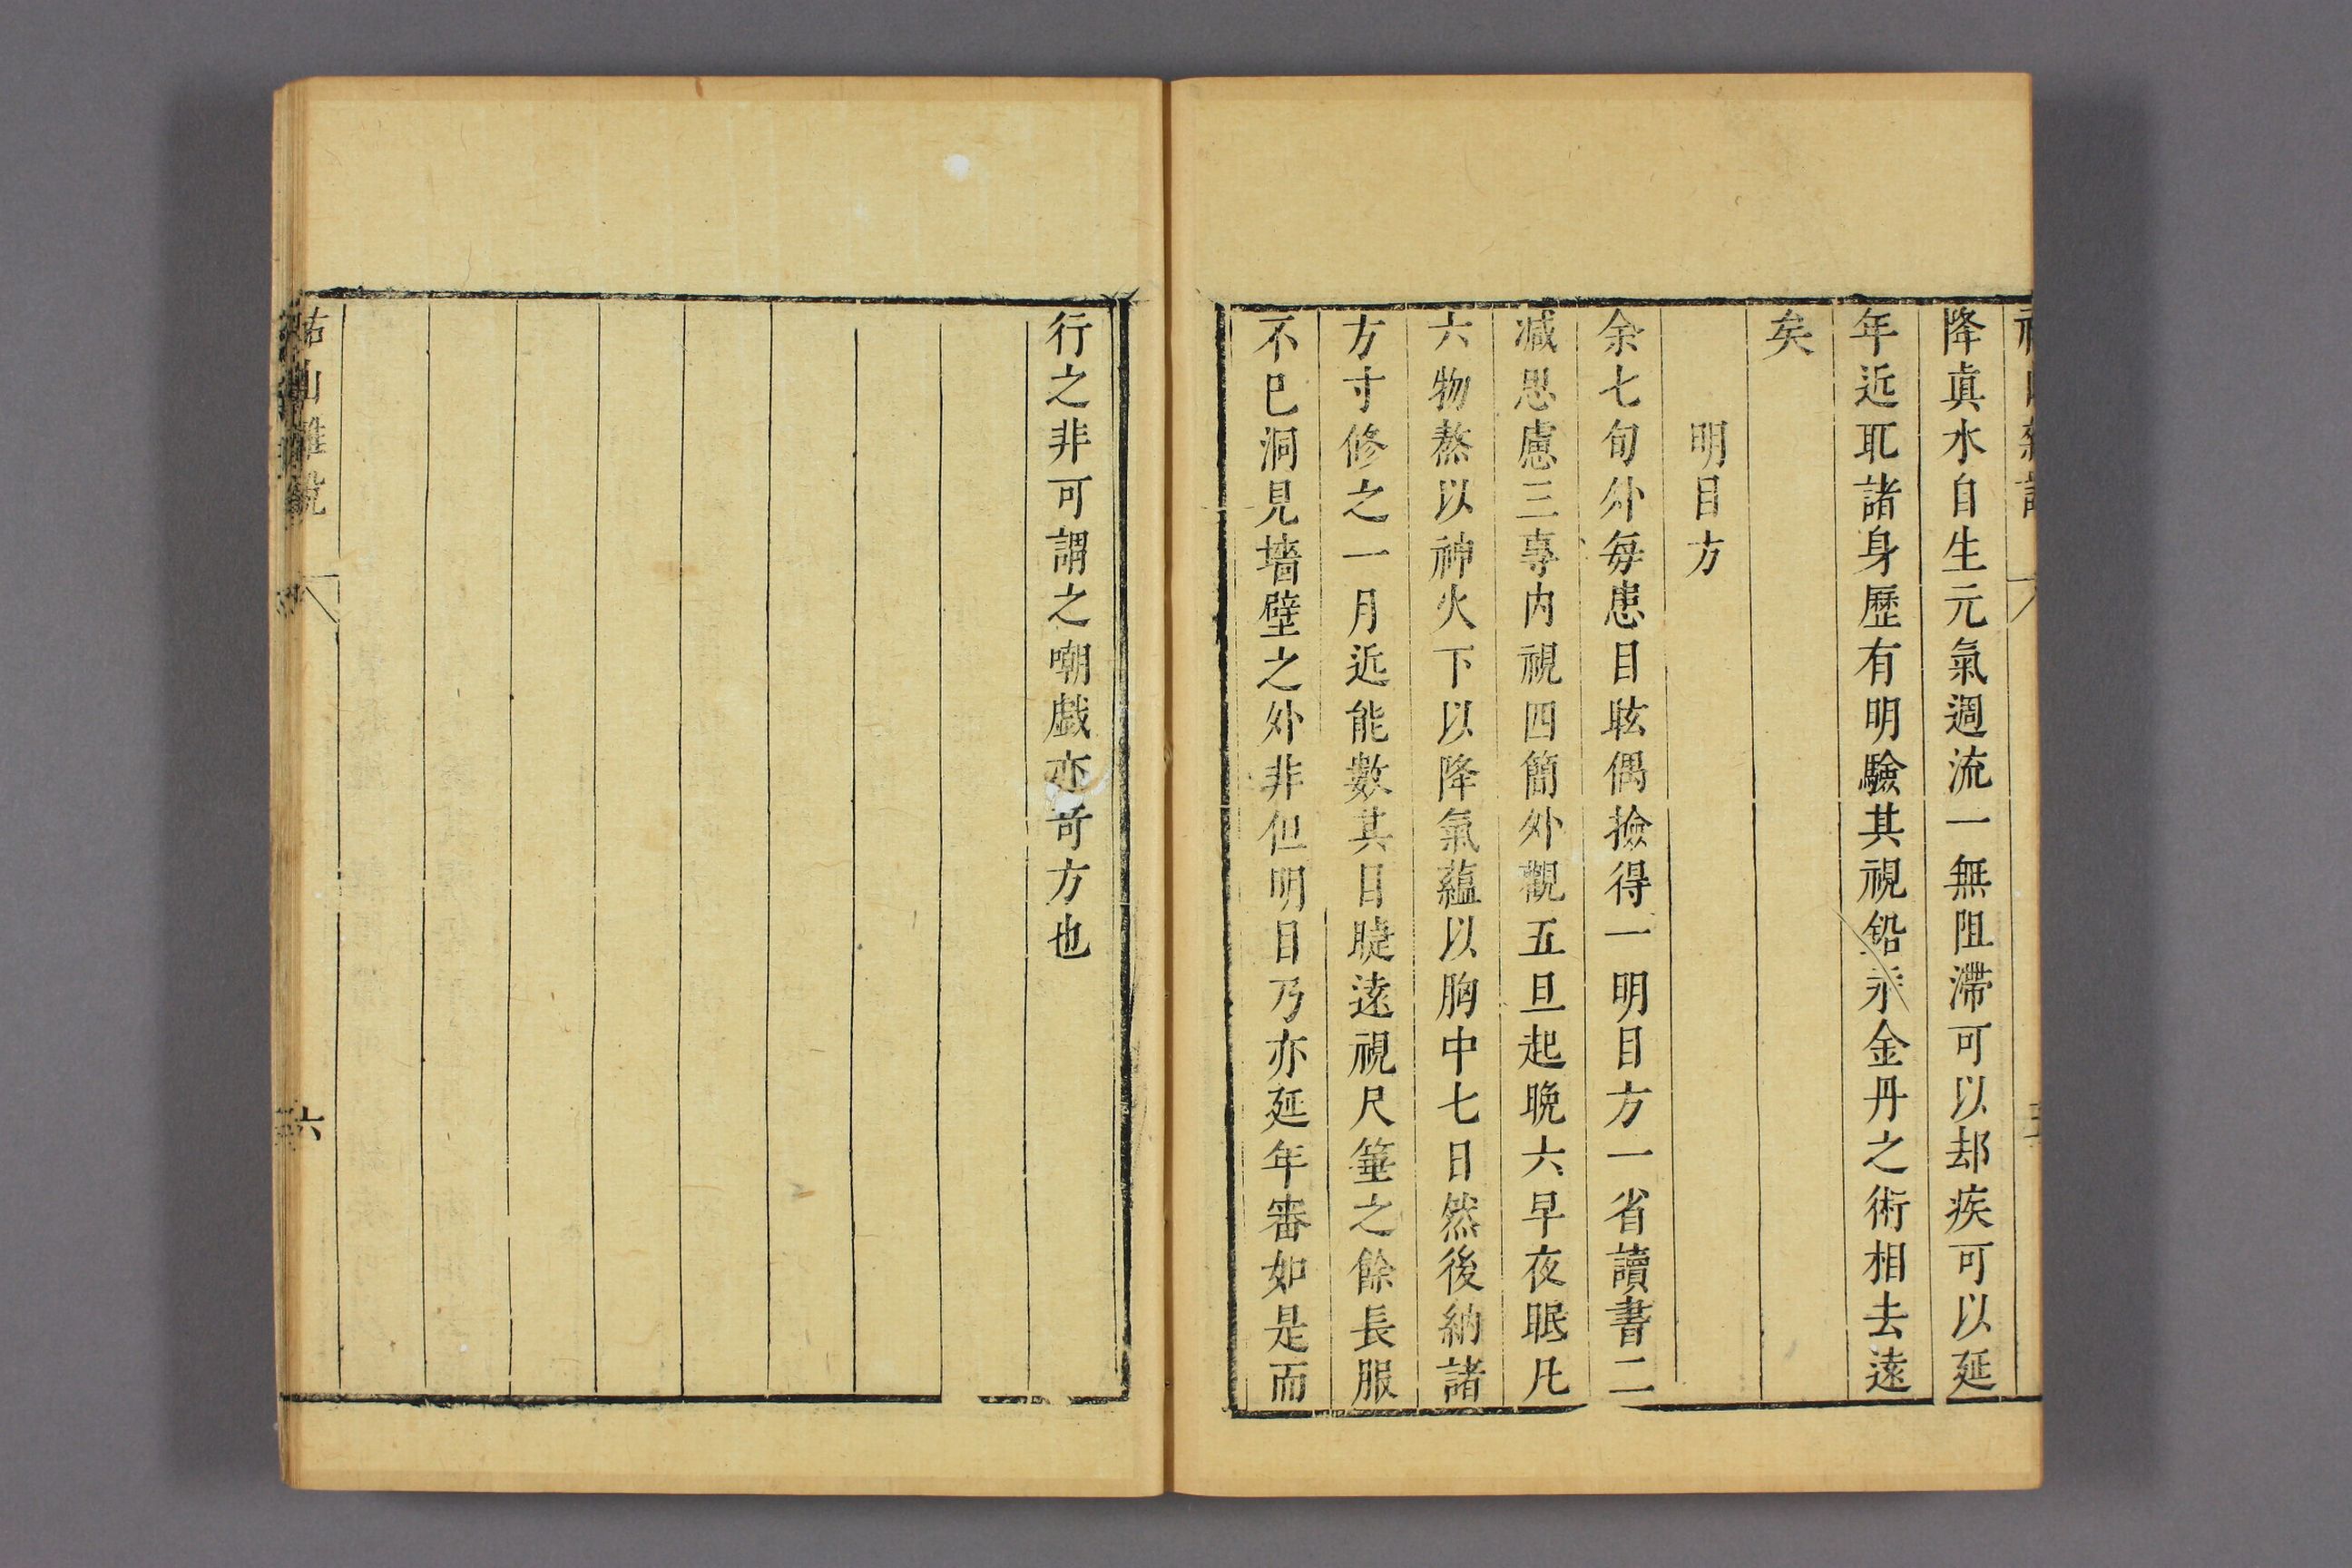 降眞水自生元氣週流一無阻滯可以却疾可以延
年近取諸身歷有明驗其視鉛汞金丹之術相去遠
矣
明目方
余七旬外每患目眩偶撿得一明目方一省讀書二
减思慮三專内視四簡外觀五旦起晚六早夜眠凡
六物熬以神火下以降氣蘊以胸中七日然後納諸
方寸修之一月近能數其目睫遠視尺箠之餘長服
不已洞見墻壁之外非但明目乃亦延年審如是而
行之非可謂之嘲戯亦奇方也
山雜說
六